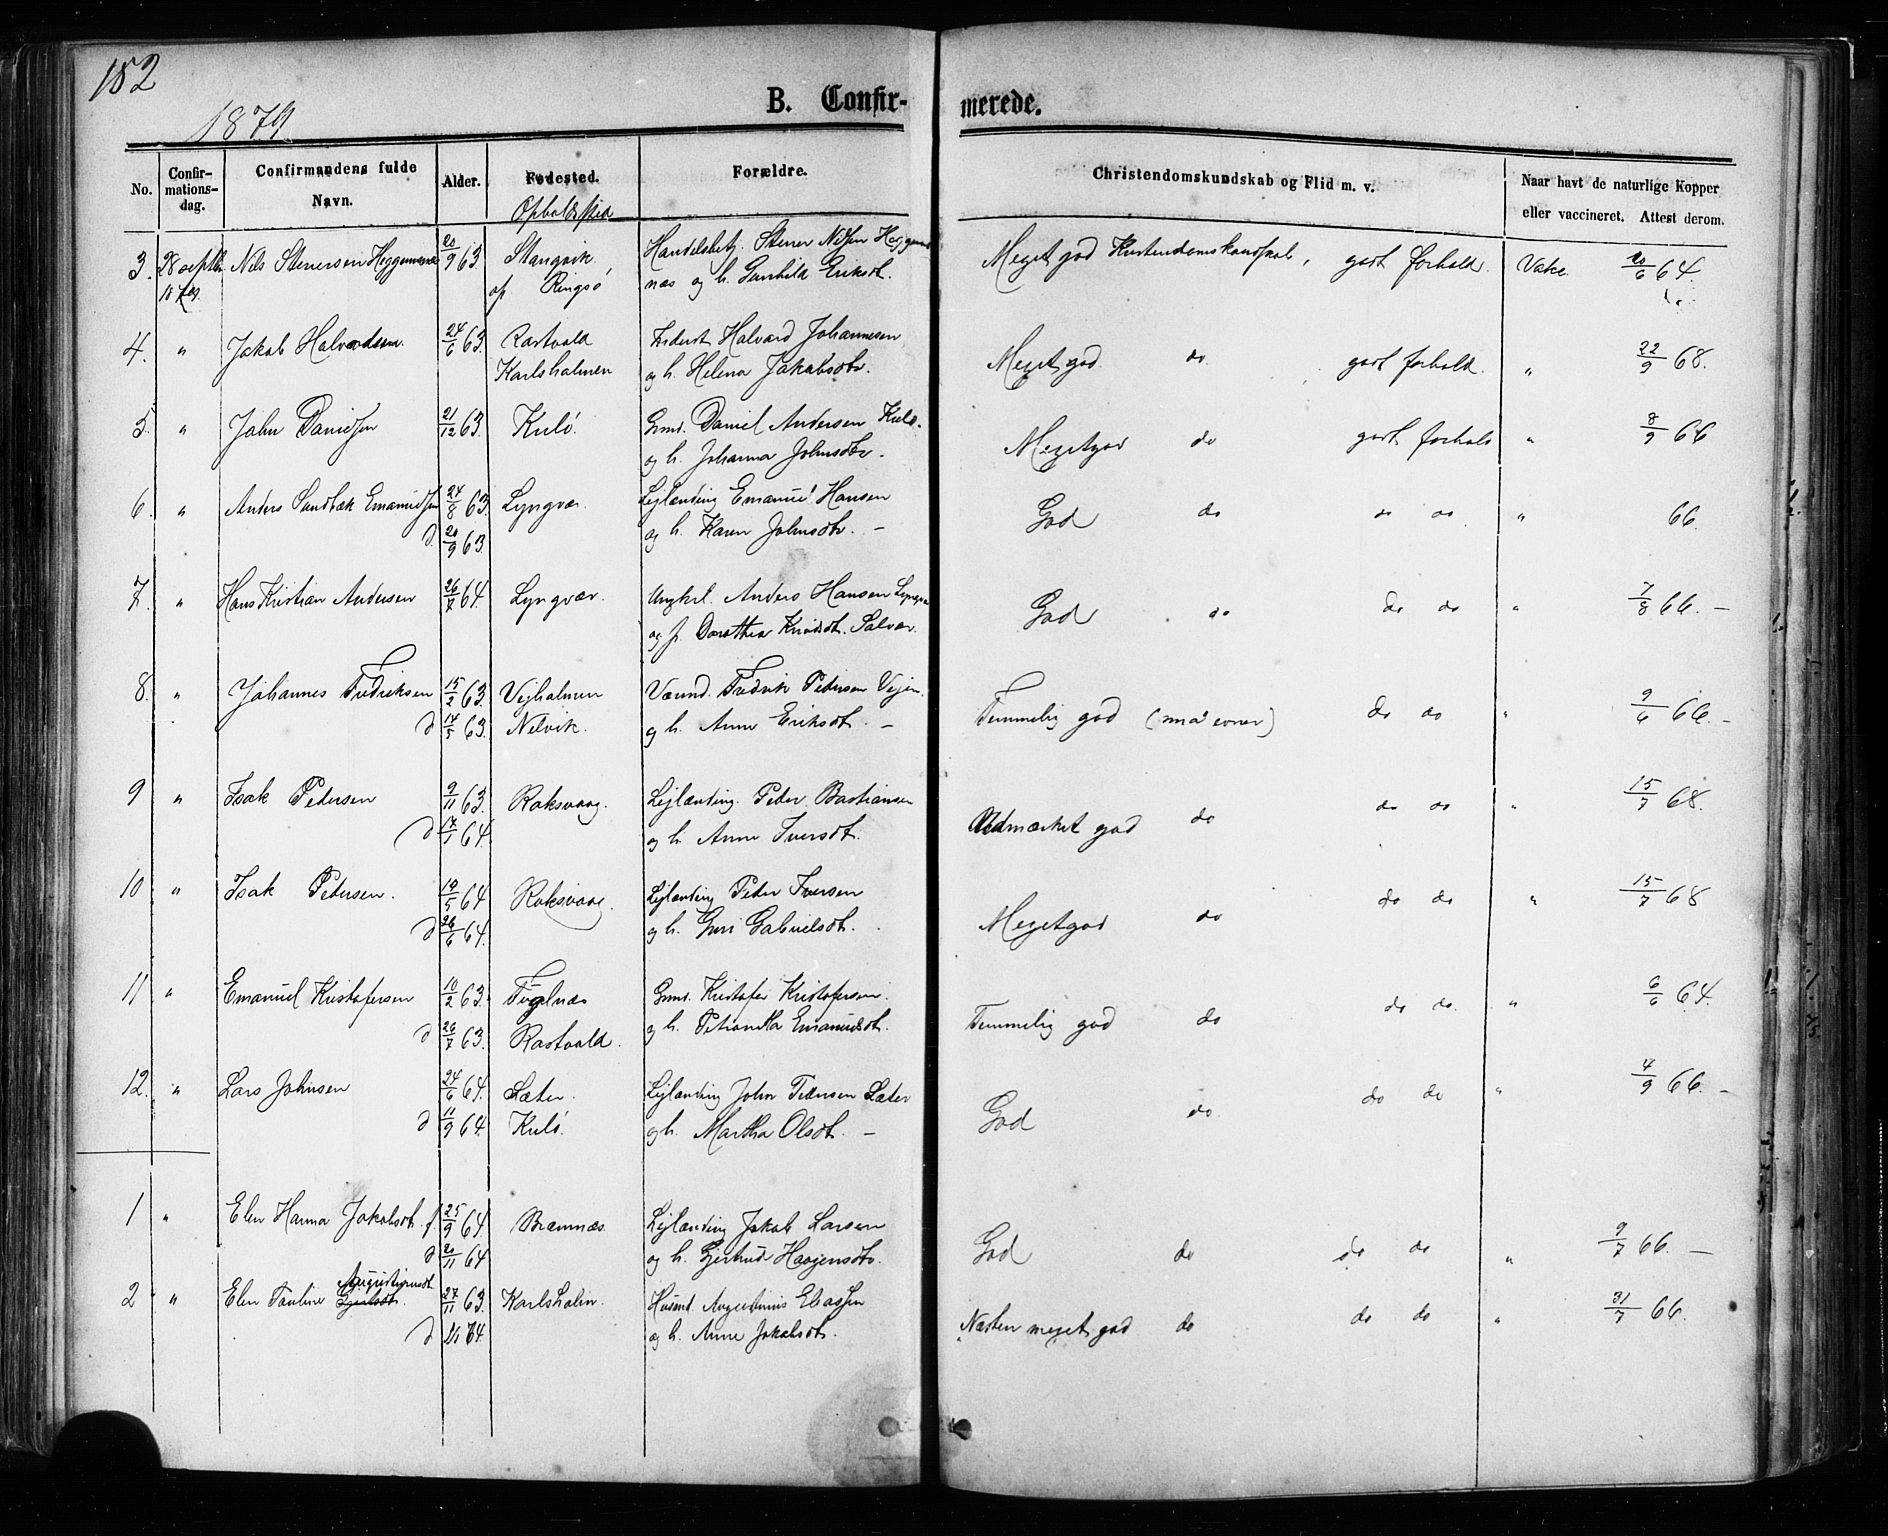 152
1879
B. Confir- merede.
No. Confir-mations-dag. Confirmandens fulde Navn. Alder. Fødested. Opholdssted Forældre. Christendomskundskab og Flid m. v. Naar havt de naturlige Kopper eller vaccineret. Attest derom.
3. 28 septbr Nils Stenersen Heggemsnæs 20/9 63. Stangvik. Handelsbetj. Stener Nilsen Heggems Meget god Kristendomskundskab, godt forhold. Vakc. 20/6 64.
1879. op Ringsø næs og h. Gunhild Eriksdt.
4. " Jakob Halvardsen 24/6 63. Rastvold Halvard Johannesen Meget god do godt forhold. " 22/9 68.
Karlsholmen og h. Helena Jakobsdtr.
5. " John Danielsen 21/12 63. Kulø. Grmd. Daniel Andersen Kulø. Megetgod do godt forhold " 8/9 66
og h. Johanna Johnsdtr.
6. " Anders Sandbæk Emanuelsen 24/8 63. Lyngvær. Lejlænding Emanuel Hansen God do do do " 66.
d. 20/9 63. og h. Karen Johnsdtr. –
7. " Hans Kristian Andersen 26/7 64. Lyngvær. Ungkrl. Anders Hansen Lyngvæ God do do do " 7/8 66. –
og p. Dorothea Knudsdt. Salvær.
8. " Johannes Fredriksen 15/2 63. Vejholmen Fredrik Pedersen Vejen. Temmelig god (små evner) do do " 9/6 66. –
d 14/5 63. Nelvik. og h. Anne Eriksdt. –
9 " Isak Pedersen 9/11 63. Roksvaag. Lejlænding. Peder Bastiansen Udmærket god do do do " 15/7 68.
d 17/1 64. og h. Anne Iversdt.
10 " Isak Pedersen. 19/5 64 Roksvaag. Lejlænding Peder Iversen Megetgod do do do " 15/7 68
d 26/6 64. og h. Guri Gabrielsdt.
11 " Emanuel Kristofersen 10/2 63. Fuglnæs Grmd. Kristofer Kristofersen. Temmelig god do do do " 6/6 64.
d 26/7 63. Rastvold. og h. Emanuelsdt.
12. " Lars Johnsen 24/6 64. Sæter. Lejlænding John Pedersen Sæter God do do do " 4/9 66. –
d 11/9 64. Kulø. og h. Martha Olsdt. –
1 " Elen Hanna Jakobsdt. f. 25/9 64. Bremnæs Lejlænding Jakob Larsen God do do do " 9/7 66. –
d 20/11 64 og h. Gjertrud Haagensdtr.
Augustinusdt
2 " Elen Pauline 27/11 63. Karlsholm. Husmd. Augustinus Eliassen Næsten meget god do do do " 31/7 66.
d 64 og h. Anne Jakobsdt.